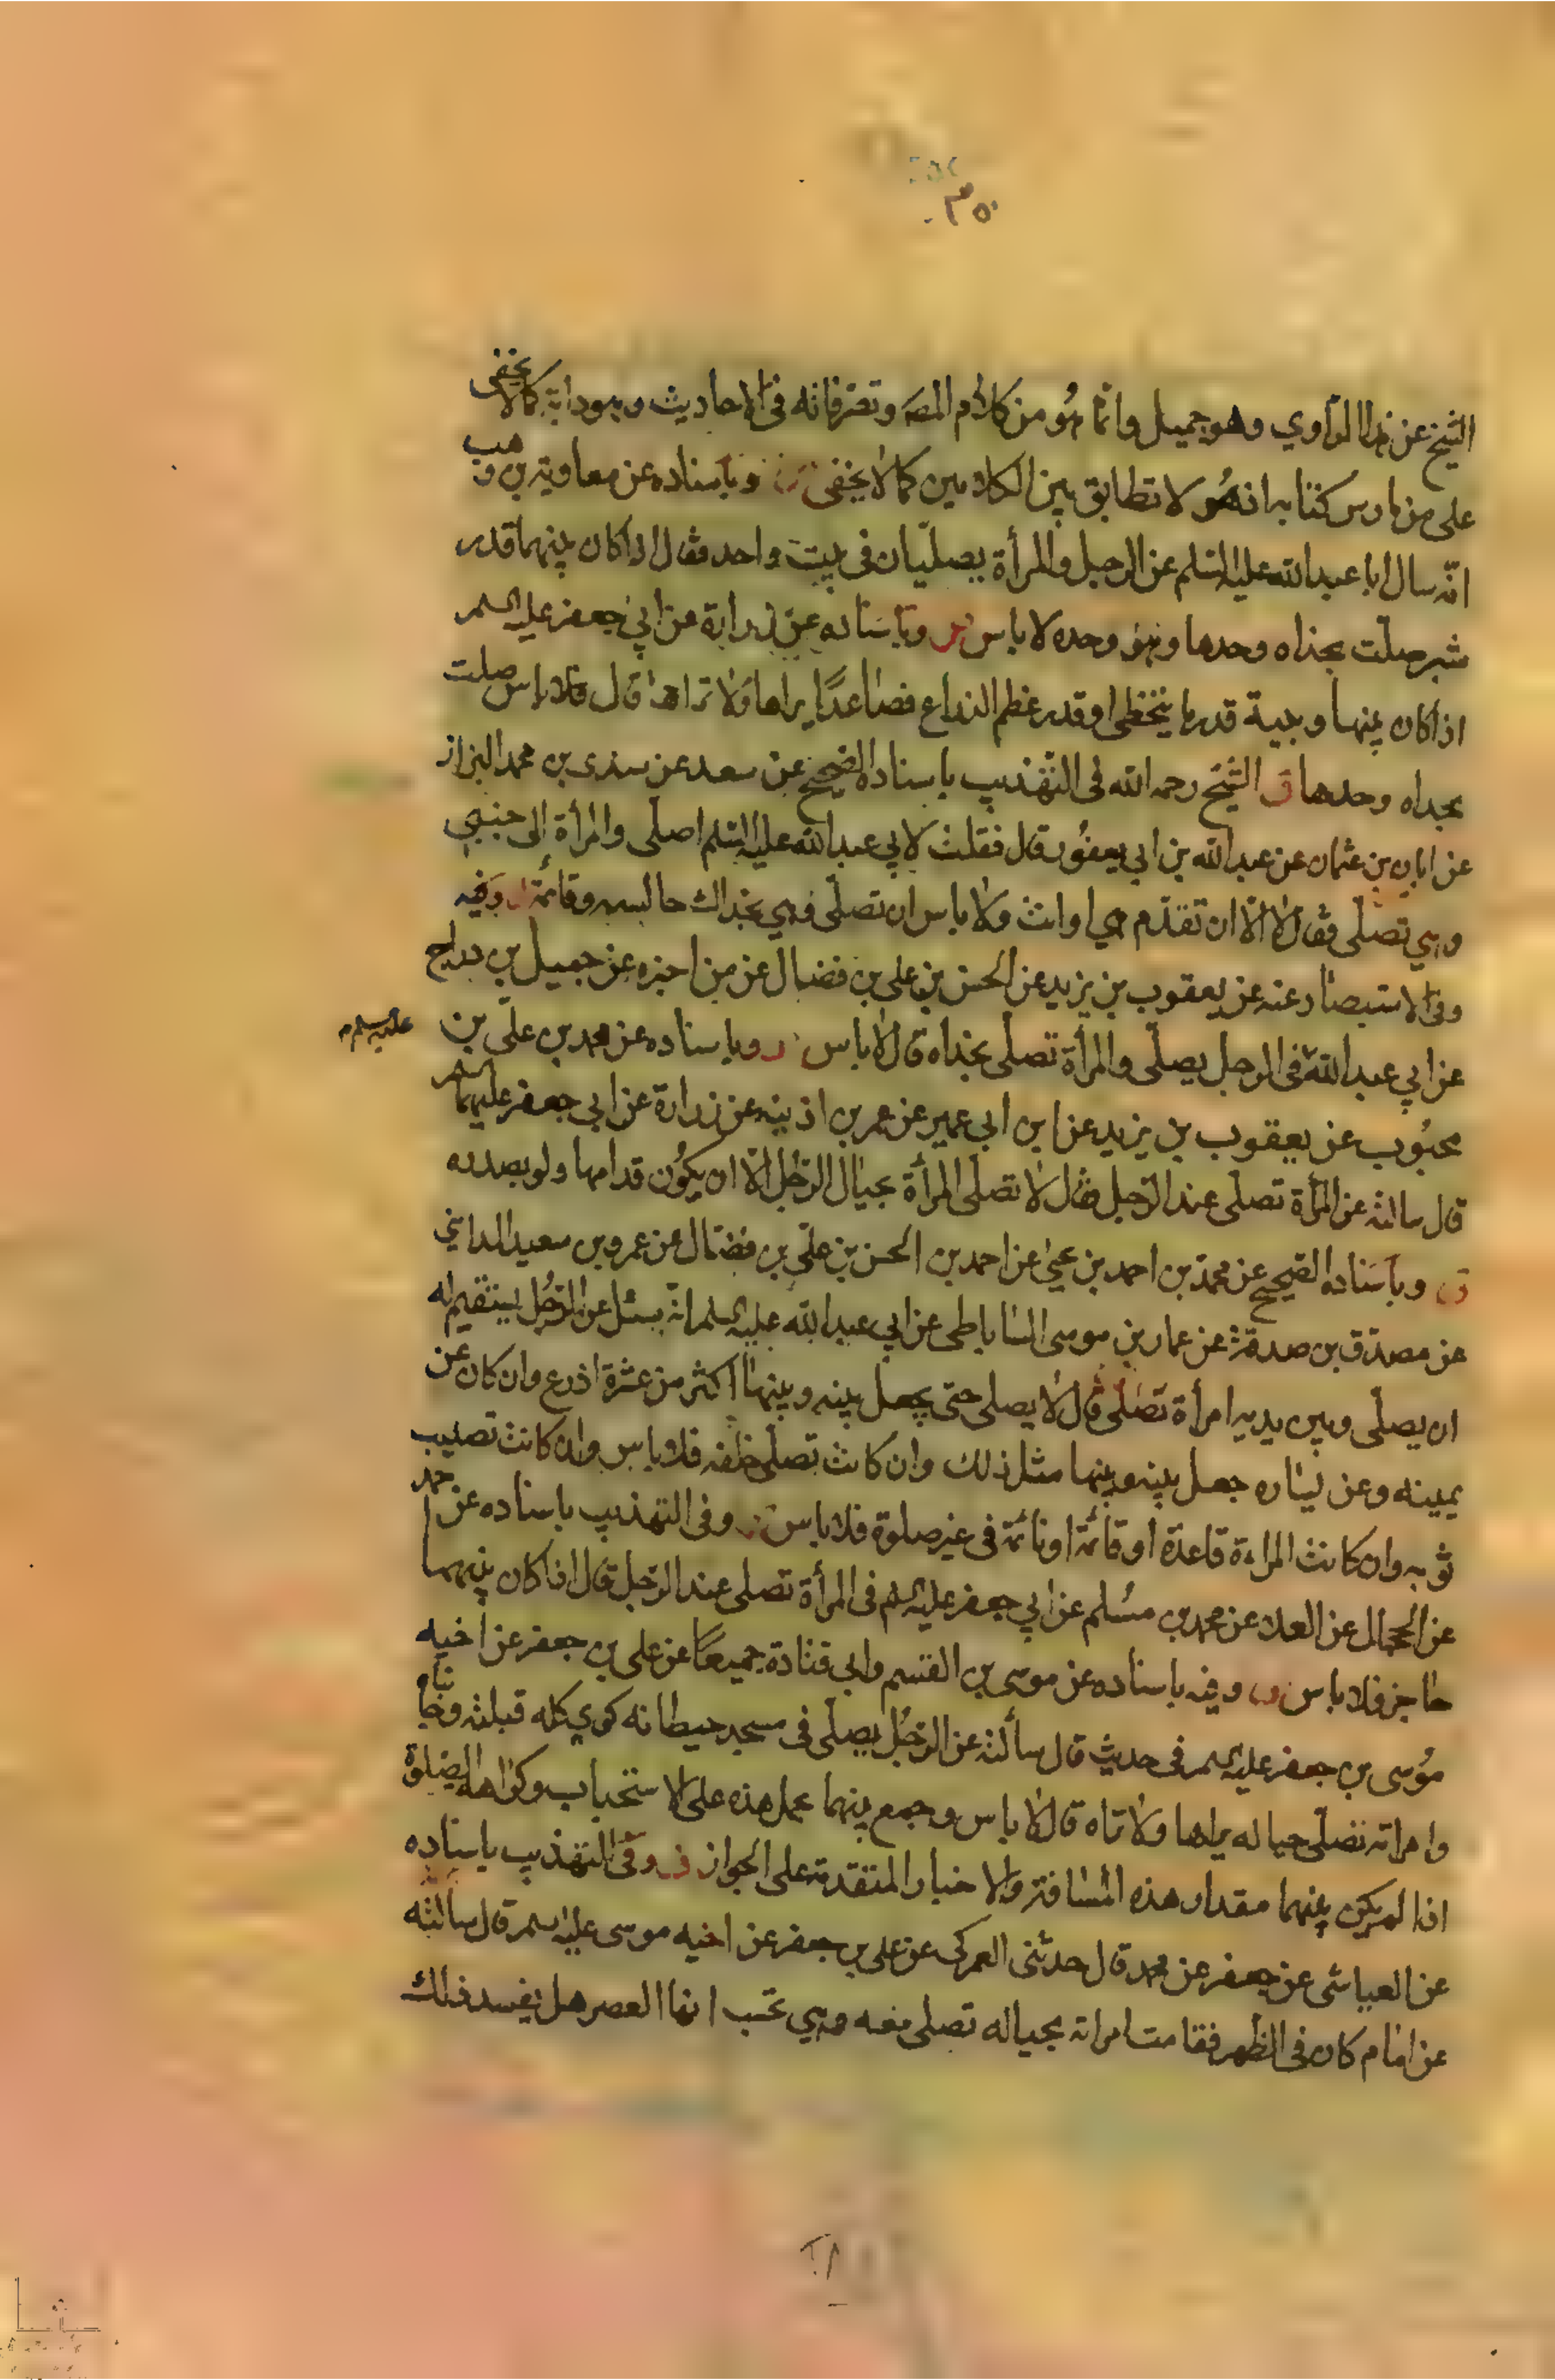 ٣٥٠
الشيخ عن هذا الراوي وهو جميل وانما هو من كلام المصه وتصرفاته في الاحاديث وهو دابه كما لا يخفى
على من مارس كتابه انه هو لا تطابق بين الكلامين كما لا يخفى وباسناده عن معاوية بن وهب
انه سال ابا عبد الله عليه السلم عن الرجل والمرأة يصليان في بيت واحد فقال اذا كان بينهما قدر
شبر صلت بحذاه وحدها وهو وحده لا باس وباسناده عن زرارة عن ابي جعفر عليه السلم
اذا كان بينها وبينه قدر ما يتخطى او قدر عظم الذراع فصاعدًا يراها ولا تراها قال فلا باس صلت
بحذاه وحدها ق الشيخ رحمه الله في التهذيب باسناده الصحيح عن سعد عن سندى بن محمد البزاز
عن ابان بن عثمان عن عبد الله بن ابي يعفور قال فقلت لابي عبد الله عليه السلم اصلى والمرأة الى جنبي
وهي تصلى فقال لا الا ان تقدم هي او انت ولا باس ان تصلى وهي بحذاك جالسه وقائمة وفيه
وفي الاستبصار عنه عن يعقوب بن يزيد عن الحسن بن على بن فضال عن من اخبره عن جميل بن دراج
عن ابي عبد الله في الرجل يصلى والمرأة تصلى بحذاه قال لا باس وباسناده عن محمد بن على بن
عليه سلم م
محبوب عن يعقوب بن يزيد عن ابن ابي عمير عن عمر بن اذينه عن زرارة عن ابي جعفر عليهما السلم
قال سالته عن المرأة تصلى عند الرجل فقال لا تصلى المرأة بحيال الرجل الا ان يكون قدامها ولو بصدره
وباسناده الصحيح عن محمد بن احمد بن يحيى عن احمد بن الحسن بن على بن فضال عن عمرو بن سعيد المدايني
عن مصدق بن صدقة عن عمار بن موسى الساباطى عن ابي عبد الله عليه السلم انه سئل عن الرجل يستقيم له
ان يصلى وبين يديه امرأة تصلى قال لا يصلى حتى يجعل بينه وبينها اكثر من عشرة اذرع وان كان عن
يمينه وعن يساره جعل بينه وبينها مثل ذلك وان كانت تصلى خلفه فلا باس وان كانت تصليب
ثوبه وان كانت المراءة قاعدة او قائمة او نائمة في غير صلوة فلا باس وفي التهذيب باسناده عن احمد
عن الحجال عن العلا عن محمد بن مسلم عن ابي جعفر عليه السلم في المرأة تصلى عند الرجل قال اذا كان بينهما
حاجز فلا باس وفيه باسناده عن موسى بن القسم وابي قتادة جميعًا عن على بن جعفر عن اخيه
موسى بن جعفر عليه السلم في حديث قال سألته عن الرجل يصلى في مسجد حيطانه كوي كله قبلته وجانباه
وامراته تصلى حياله يراها ولا تراه قال لا باس وجمع بينهما بحمل هذه على الاستحباب وكراهة الصلوة
اذا لم يكن بينهما مقدار هذه المسافة والاخبار المتقدمة على الجواز وفي التهذيب باسناده
عن العياشى عن جعفر عن محمد قال حدثنى العمركى عن على بن جعفر عن اخيه موسى عليه سلم قال سالته
عن امام كان في الظهر فقامت امراته بحياله تصلى معه وهي تحسب انها العصر هل يفسد ذلك